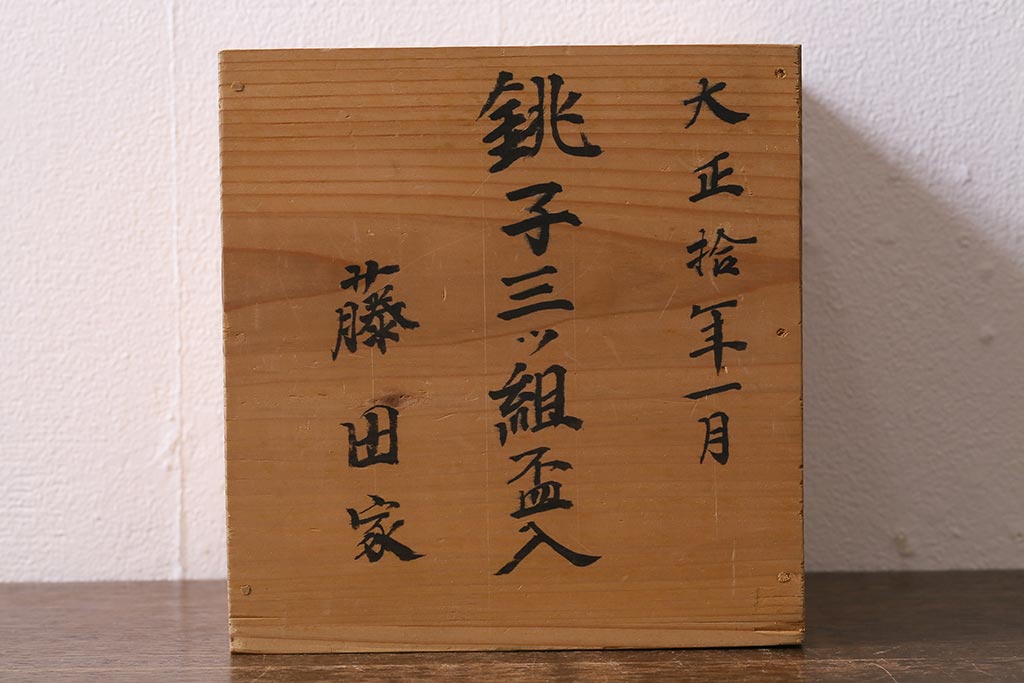 大正拾年一月
銚子三ッ組盃入
藤田家